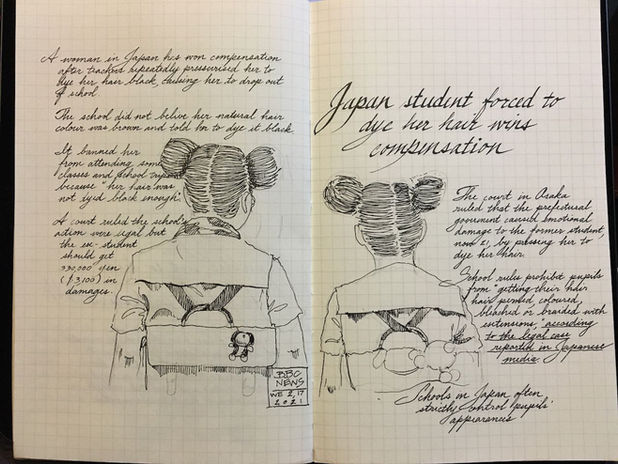 A woman in Japan has won compensation
after teachers repeatedly pressurised her to
dye her hair black, causing her to drop out
of school
The school did not belive her natural hair
colour was brown and told her to dye it black
It banned her
from attending some
classes and school trips
because "her hair was
not dyed black enough".
A court ruled the school's
action were legal but
the ex-student
should get
330,000 yen
($3,100) in
damages.
BBC
NEWS
WE 2,17
2021
Japan student forced to
dye her hair wins
compensation
The court in Osaka
ruled that the prefectural
goverment caused emotional
damage to the former student,
now 21, by pressing her to
dye her hair.
School rules prohibit pupils
from "getting their hair
hair permed, coloured,
bleached or braided with
extensions," according
to the legal case
reported in Japanese
media.
Schools in Japan often
strictly control pupils'
appearances